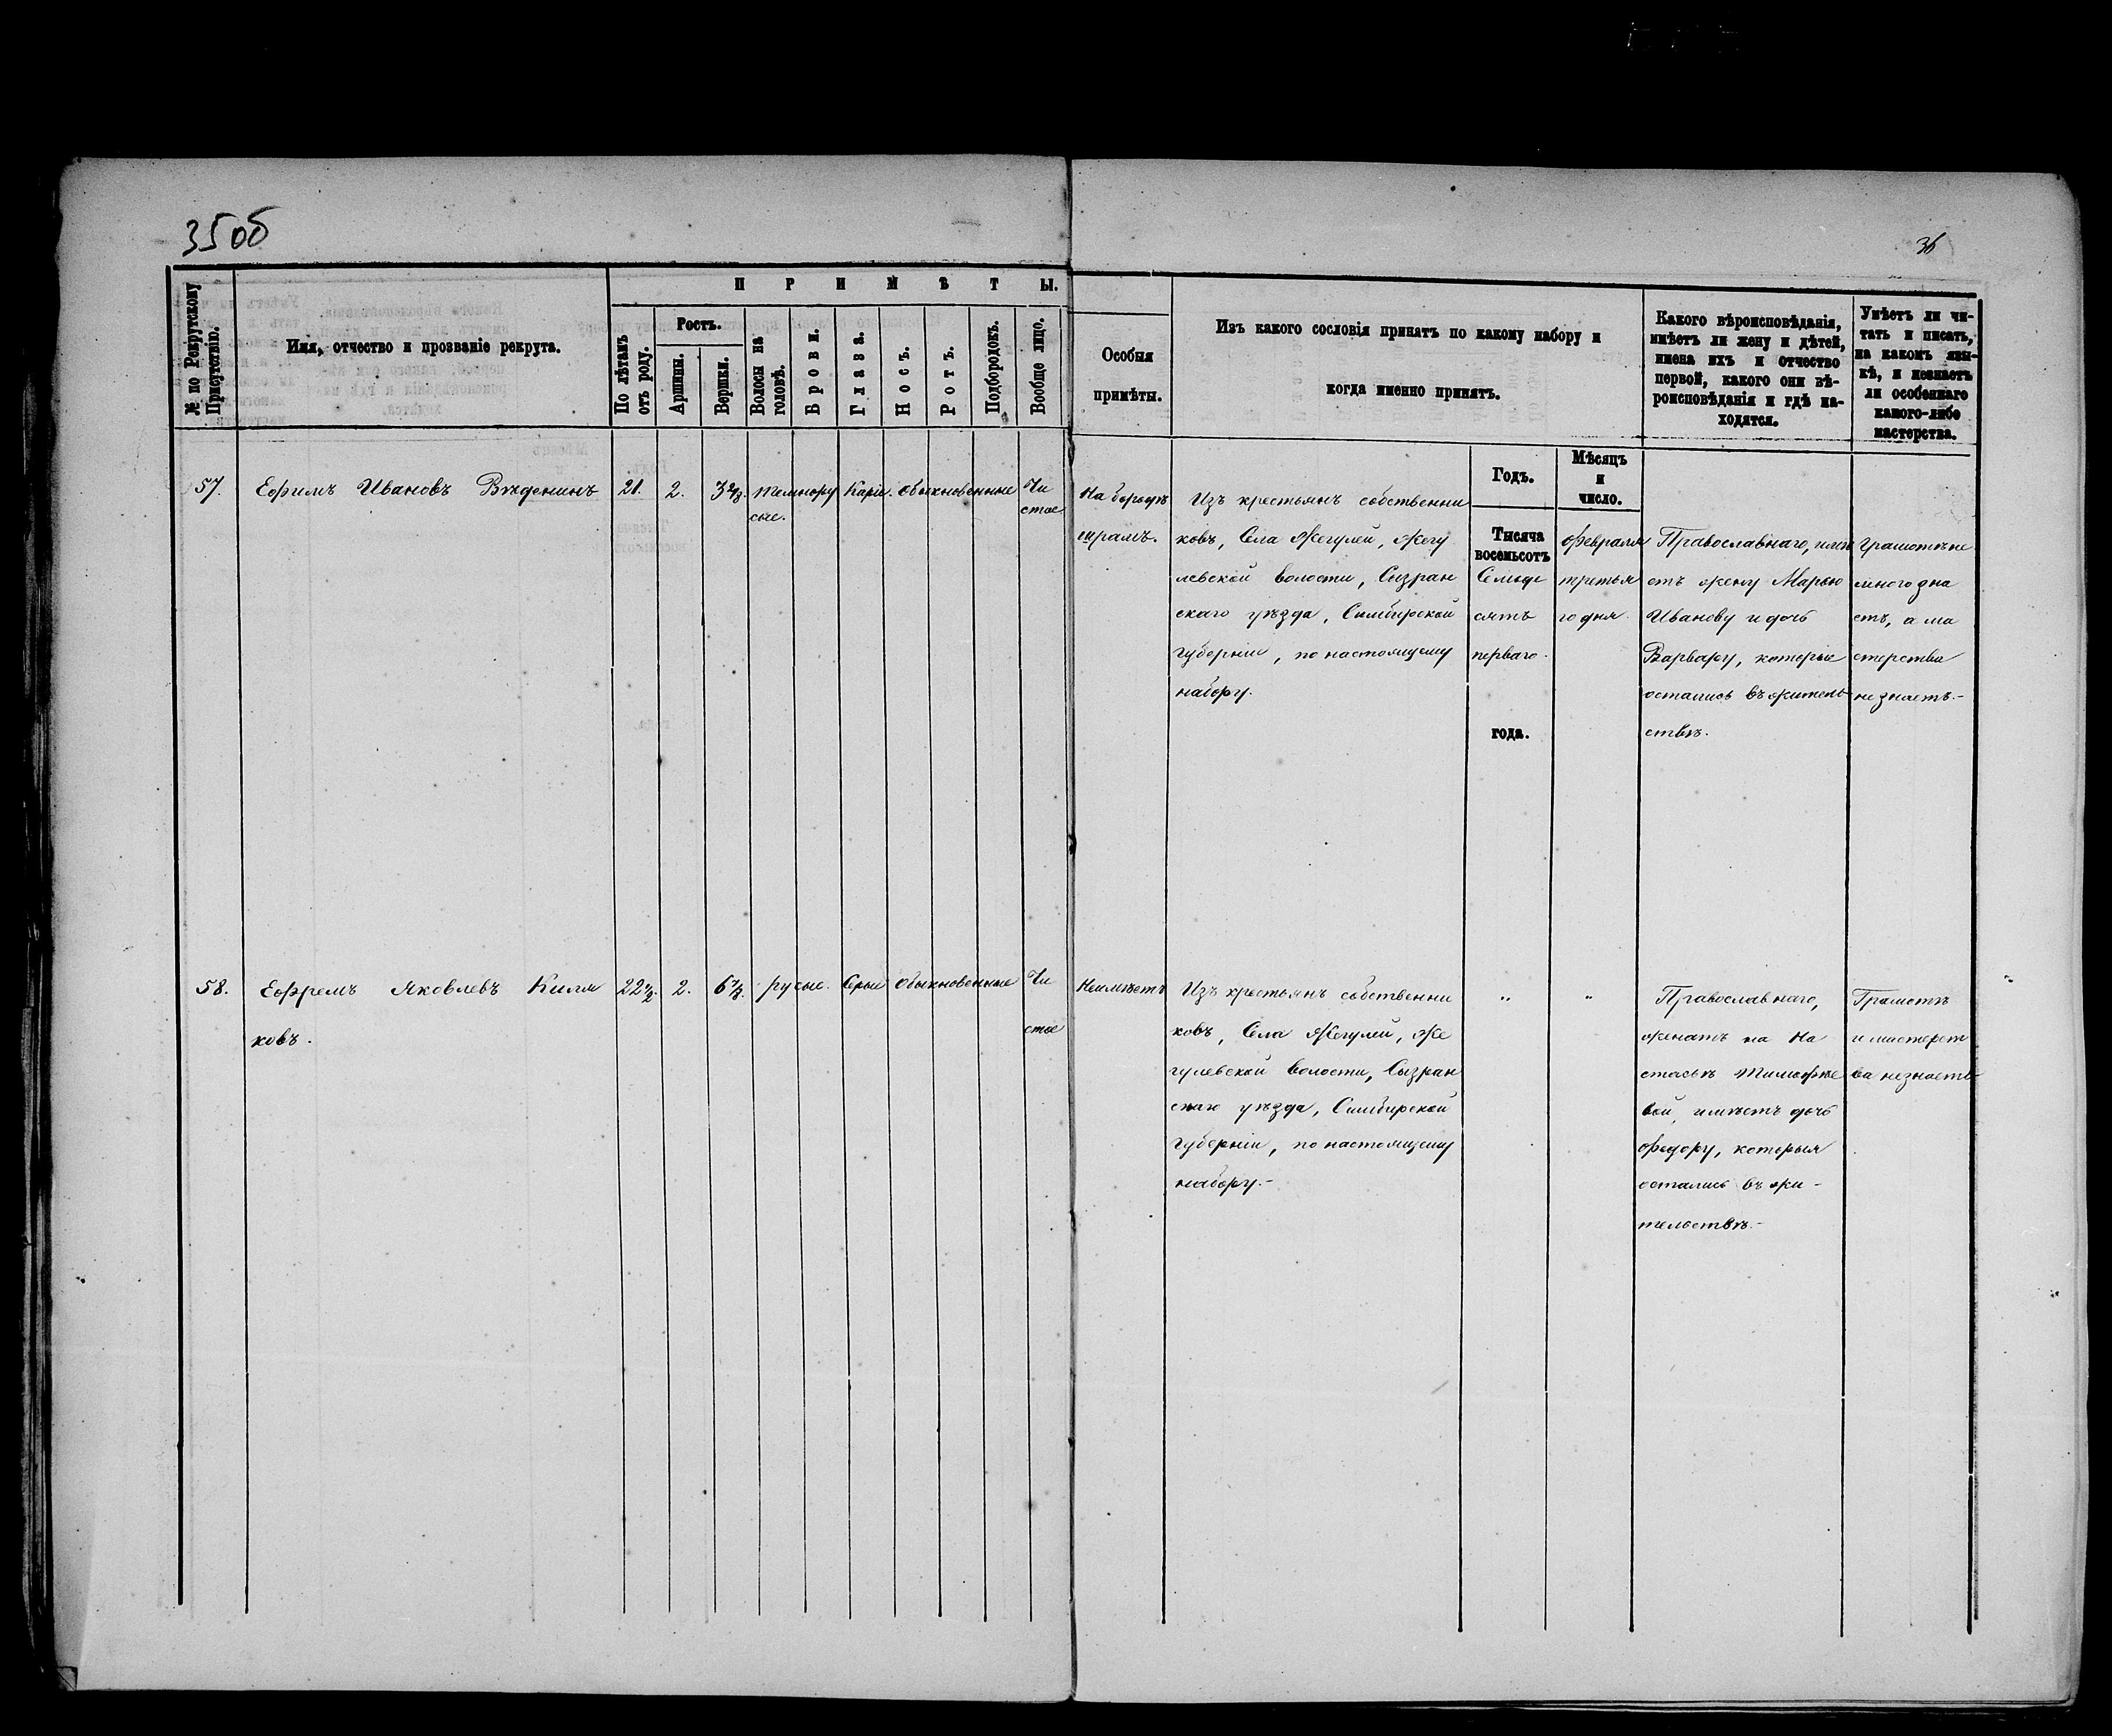 35об
36
№ по Рекрутскому Присутствію.
Имя, отчество и прозваніе рекрута.
ПРИМѢТЫ.
По лѣтамъ отъ роду.
Ростъ.
Аршины.
Вершки.
Волосы на головѣ.
Брови.
Глаза.
Носъ.
Ротъ.
Подбородокъ.
Вообще лицо.
Особыя
примѣты.
Изъ какого сословія принятъ по какому набору и
когда именно принятъ.
Какого вѣроисповѣданія,
имѣетъ ли жену и дѣтей,
имена ихъ и отчество
первой, какого они вѣ-
роисповѣданія и гдѣ на-
ходятся.
Умѣетъ ли чи-
тать и писать,
на какомъ язы-
кѣ, и незнаетъ
ли особеннаго
какого-либо
мастерства.
Годъ.
Мѣсяцъ
и
число.
57.
Ефимъ Ивановъ
21.
2.
темнору
сые.
Каріе.
обыкновенные
Чи
стое
На бородѣ
шрамъ.
Изъ крестьянъ собственни
ковъ, Села Жегулей, Жегу
левской волости, Сызран
скаго уѣзда, Симбирской
губерніи, по настоящему
набору.
Тысяча
восемьсотъ
Семьде
сятъ
перваго.
года.
Февраля
третья
го дня.
Православнаго, имѣ
етъ жену Марью
Иванову и дочь
Варвару, которые
остались въ житель
ствѣ.
Грамотѣ не
много зна
етъ, а ма
стерства
не знаетъ.-
58.
Ефремъ Яковлевъ Килля
ковъ.
2.
русые.
Серые
обыкновенные
Чи
стое
Неимѣетъ
Изъ крестьянъ собственни
ковъ, Села Жегулей, Же
гулевской волости, Сызран
скаго уѣзда, Симбирской
губерніи, по настоящему
набору.-
"
"
Православнаго,
женатъ на На
стасьѣ Тимофѣе
вой, имѣетъ дочь
Федору, которыя
остались въ жи-
тельствѣ.-
Грамотѣ
и мастерст
ва незнаетъ-